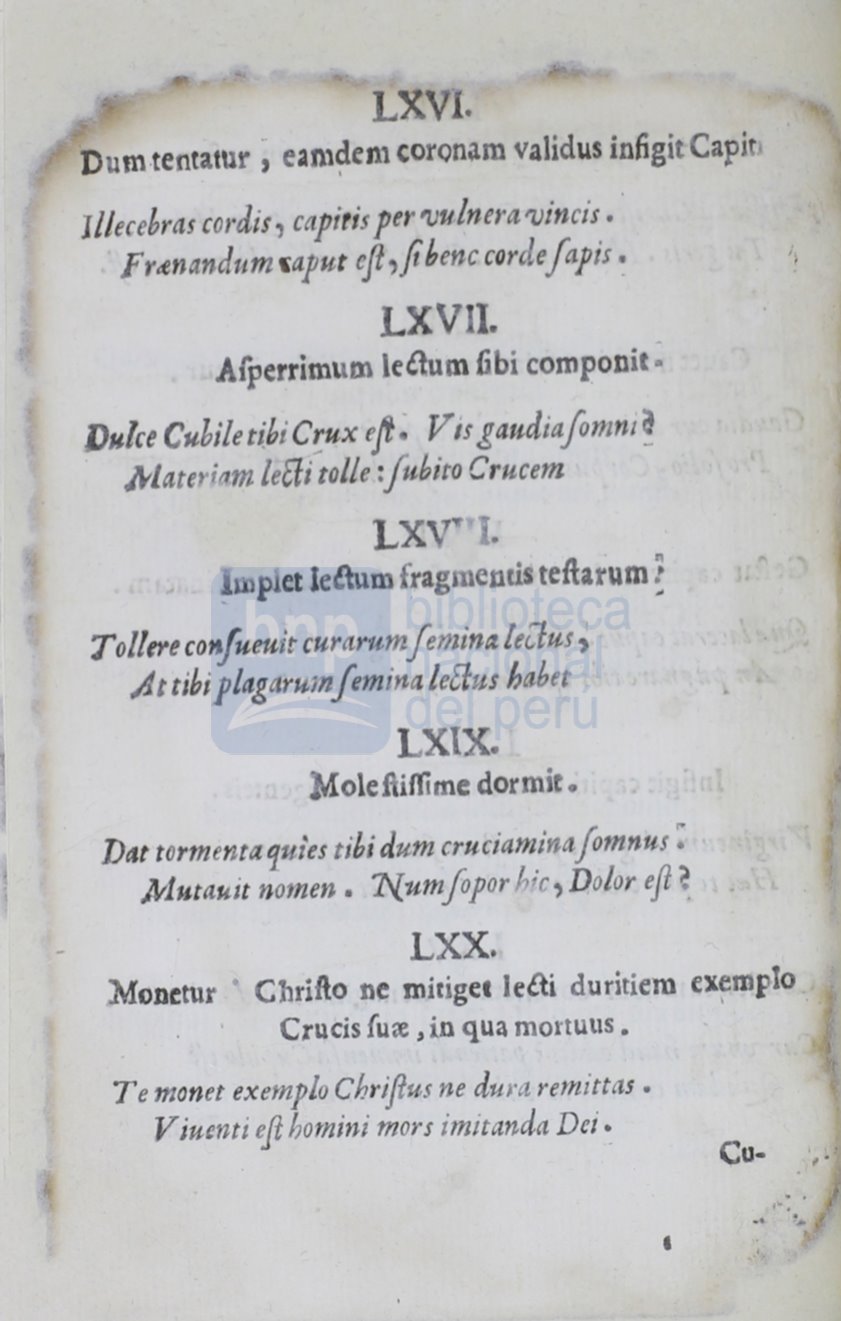 LXVI.
Dum tentatur, eamdem coronam validus infigit Capiti
Illecebras cordis, capitis per vulnera vincis.
Frænandum caput eſt, ſi bene corde ſapis.
LXVII.
Aſperrimum lectum ſibi componit.
Dulce Cubile tibi Crux eſt. Vis gaudia ſomni?
Materiam lecti tolle: ſubito Crucem
LXVIII.
Implet lectum fragmentis teſtarum.
Tollere conſueuit curarum ſemina lectus,
At tibi plagarum ſemina lectus habet
LXIX.
Moleſtiſſime dormit.
Dat tormenta quies tibi dum cruciamina ſomnus.
Mutauit nomen. Num ſopor hic, Dolor eſt?
LXX.
Monetur Chriſto ne mitiget lecti duritiem exemplo
Crucis ſuæ, in qua mortuus.
Te monet exemplo Chriſtus ne dura remittas.
Viuenti eſt homini mors imitanda Dei.
Cu-
bnp biblioteca
nacional
del perú